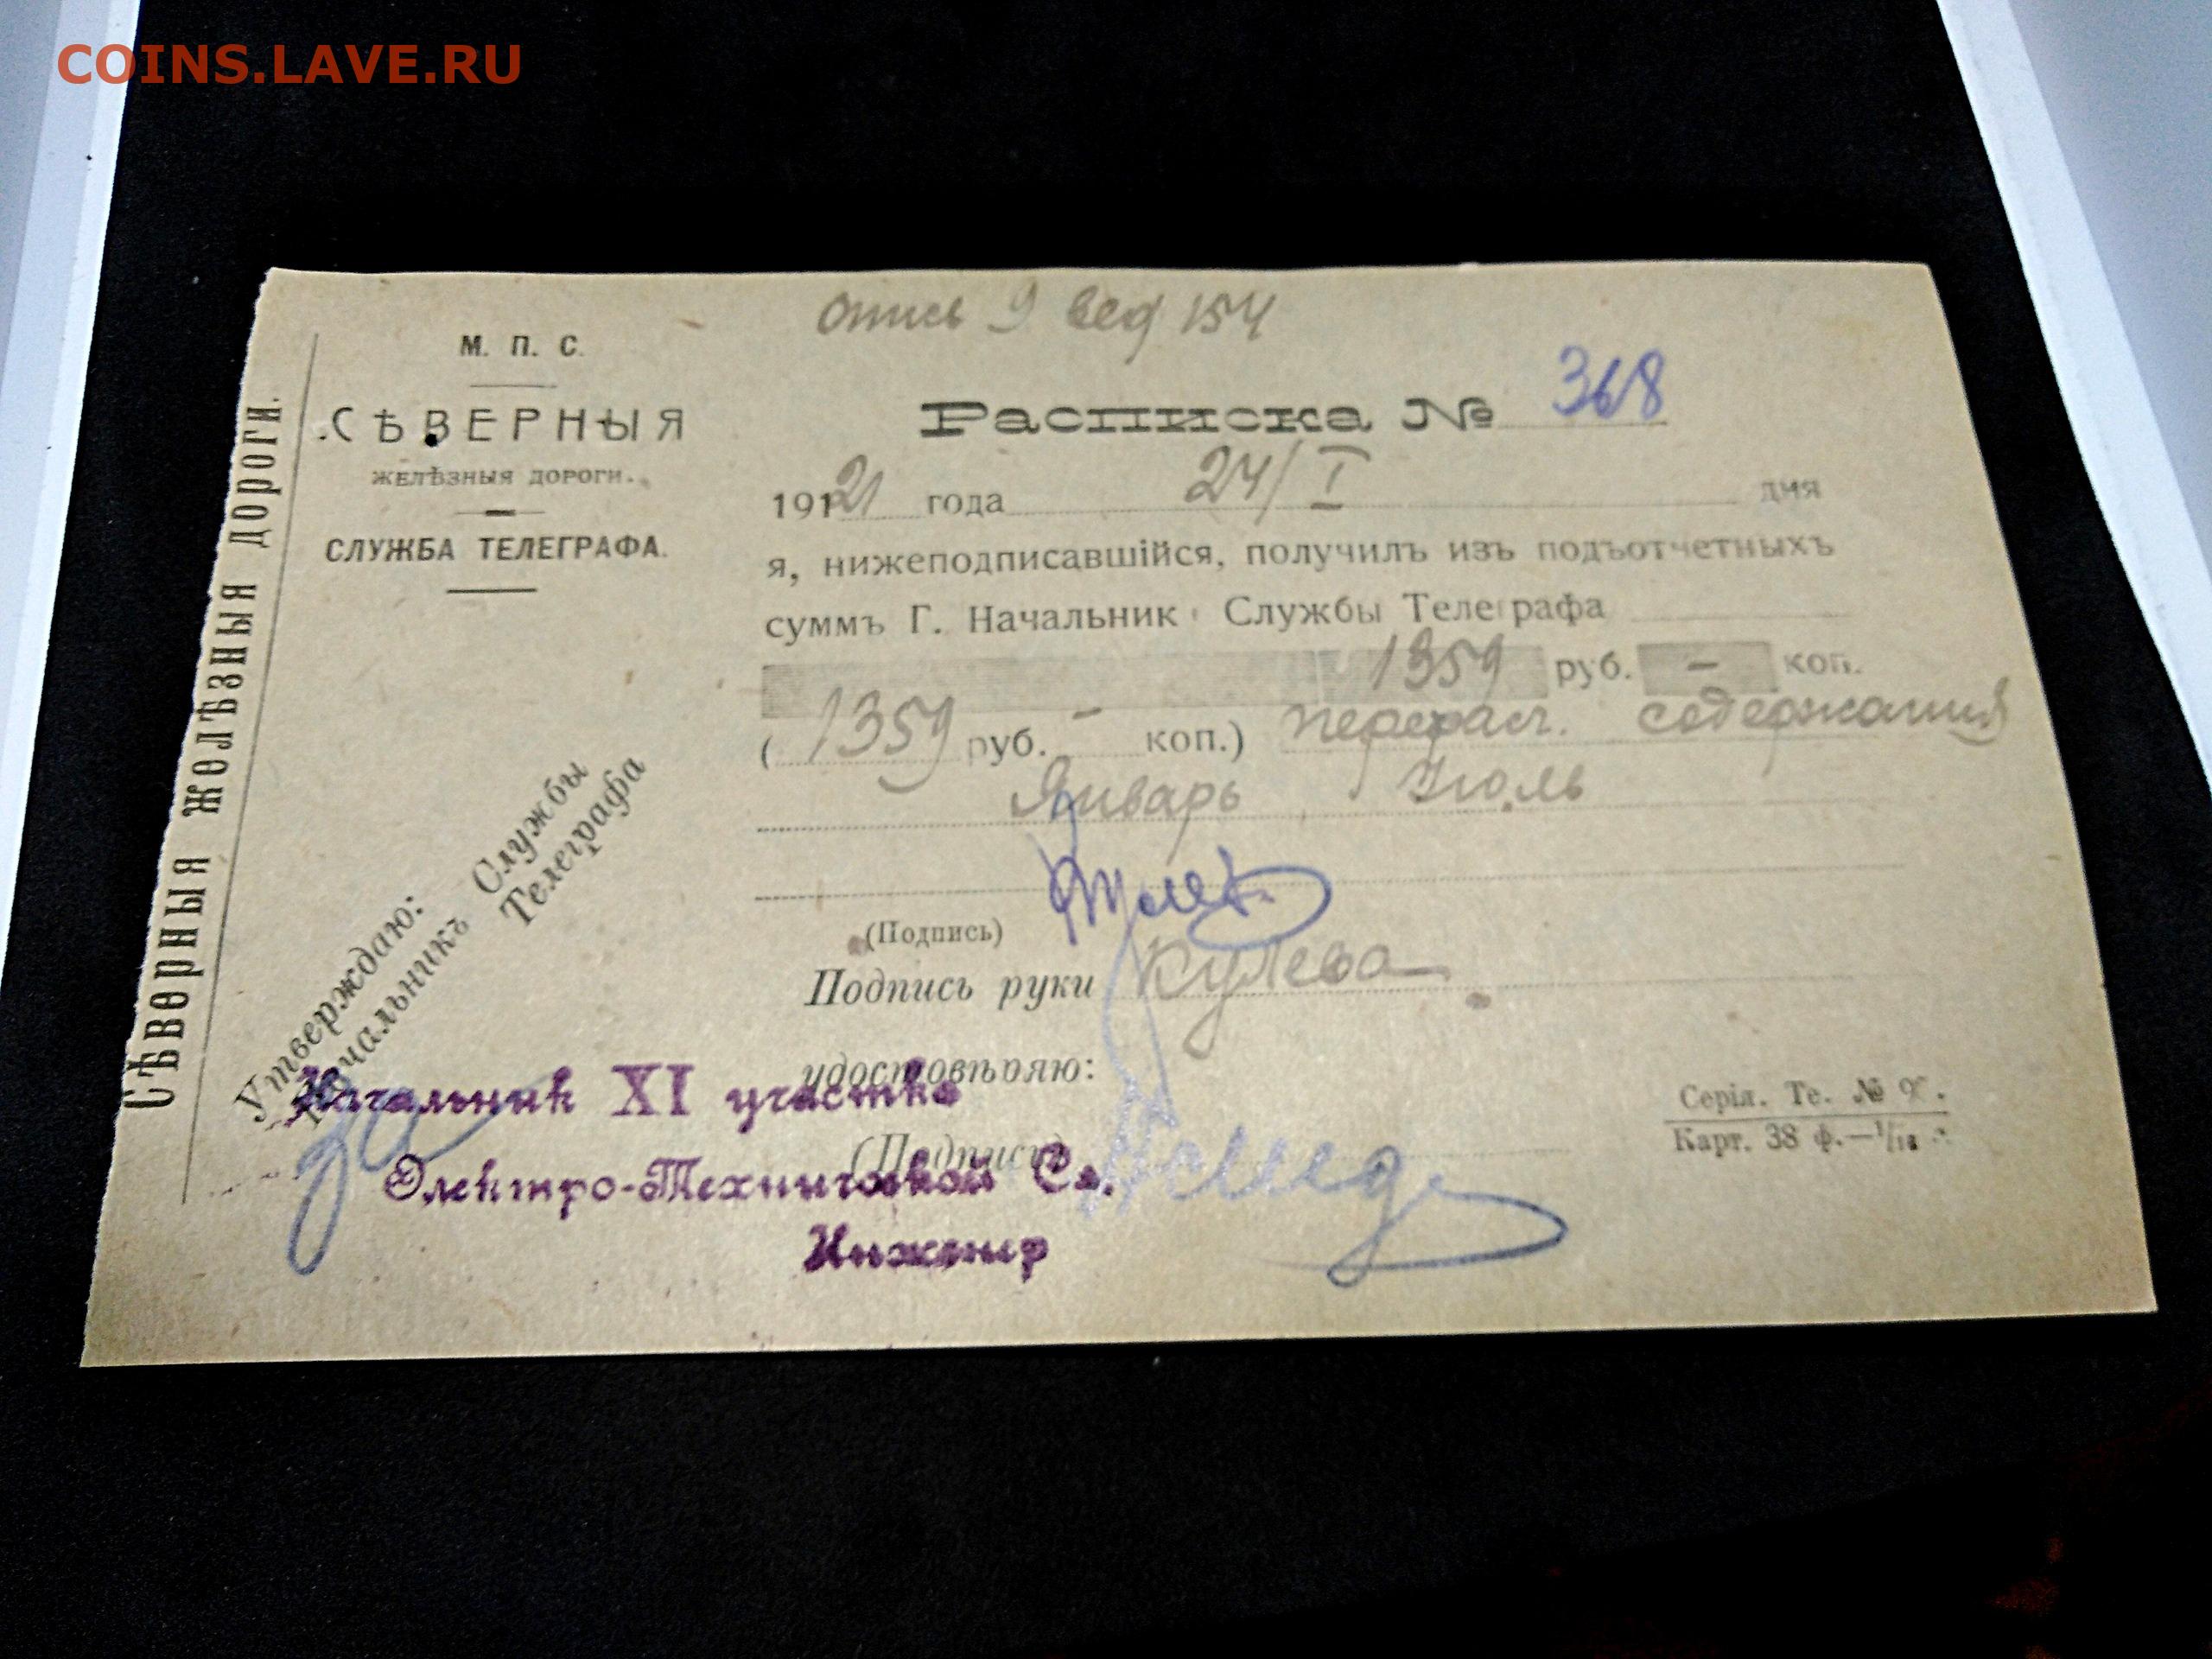 COINS.LAVE.RU
Опись 9 вед 154
М. П. С.
СѢВЕРНЫЯ
ЖЕЛѢЗНЫЯ ДОРОГИ.
СЛУЖБА ТЕЛЕГРАФА.
Сѣверныя желѣзныя дороги.
Утверждаю:
Начальникъ Службы
Телеграфа
Расписка № 368
1921 года 24/I дня
я, нижеподписавшійся, получилъ изъ подъотчетныхъ
суммъ Г. Начальник Службы Телеграфа
1359 руб. — коп.
(1359 руб. — коп.) содержания
Январь Июль
(Подпись)
Подпись руки Кулева
удостовѣряю:
(Подпись)
Начальник XI участка
Электро-Технической Сл.
Инженер
Серія. Те. №
Карт. 38 ф.—